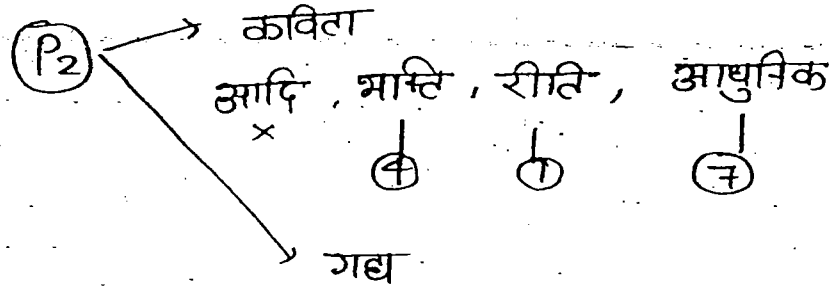 P₂ → कविता
आदि, भक्ति, रीति, आधुनिक
× ④ ① ⑦
गद्य